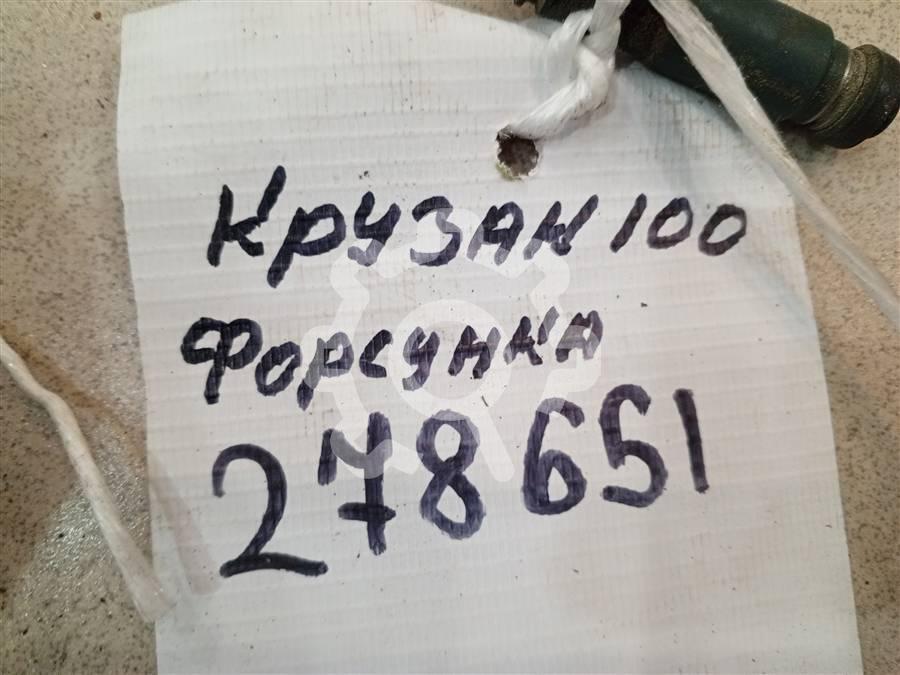 Крузан 100
Форсунка
278651